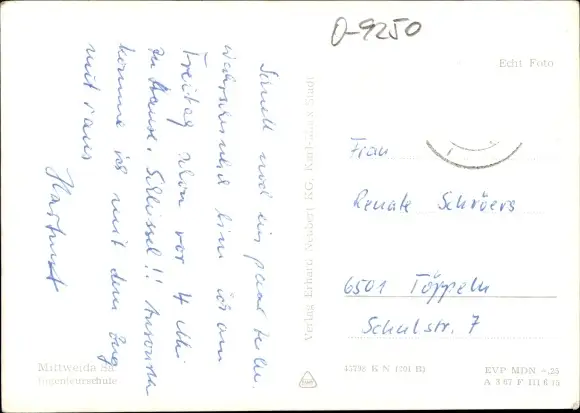 O-9250
Echt Foto
Schnell noch ein paar Zeilen.
Wahrscheinlich bin ich am
Freitag schon vor 4 Uhr
zu Hause. Schlüssel!! Ansonsten
komme ich mit dem Zug
mit
Hartmut
Verlag Erhard Neubert KG, Karl-Marx-Stadt
Frau
Renate Schröers
6501 Töppeln
Schulstr. 7
Mittweida Sa.
Ingenieurschule
EVP MDN -,25
A 3 67 F 111 6 15